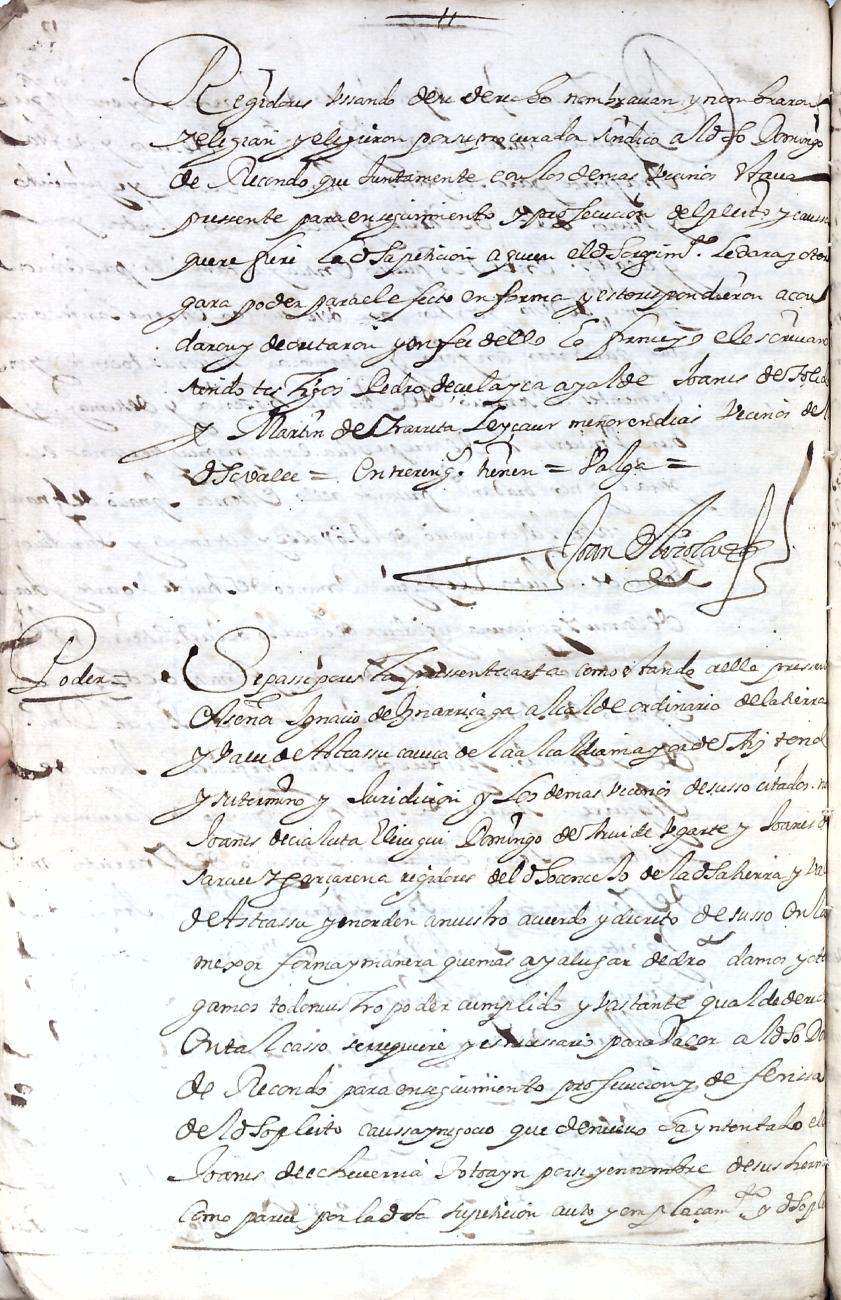 11
Regidores ussando de su derecho nombravan y nombraron
y elegian y eligieron por su procurador sindico al dho Domingo
de Recondo que juntamente con los demas vecinos estava
pressente para en seguimiento y prosecucion del pleito y caussa
que refiere la dha peticion a quien el dho
gara poder para el efecto en forma y esto respondieron acor
daron y decretaron y en fee dello lo firme yo el escrivano
siendo tes tigos Pedro de ayalde Joanes de
y Martin de Yrarruta Leyçaur menor en dias vecinos del
dho valle = Entrereng.s tienen = Valga =
Joan de
Poder =
Sepasse por esta pressente carta como estando a ello presse
el señor Ignacio de Ynarriçaga alcalde ordinario de la tierra
y valle de Asteassu caveça de la alcaldia mayor de
y su termino y juridicion y los demas vecinos de susso citados
Joanes de cialceta Elicegui Domingo de Yrure Ugarte y Joanes de
regidores del dho concejo de la dha tierra y va
de Asteassu y en orden a nuestro acuerdo y decreto de susso en la
mexor forma y manera que mas aya lugar de dro damos y otor
gamos todo nuestro poder cumplido y vastante qual de derecho
en tal casso se rrequiere y es nessessario para valer al dho Do
de Recondo para en seguimiento prosecucion y de fenssa
del dho pleito caussa y negocio que de nuevo ha yntentado el
Joanes de echeverria Sotoayn por si y en nombre de sus herm
como parece por la dha su peticion auto y emplaçam.to y dho ple